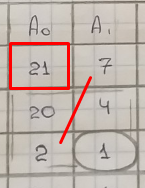 A₀ A₁
21 7
20 4
2 1